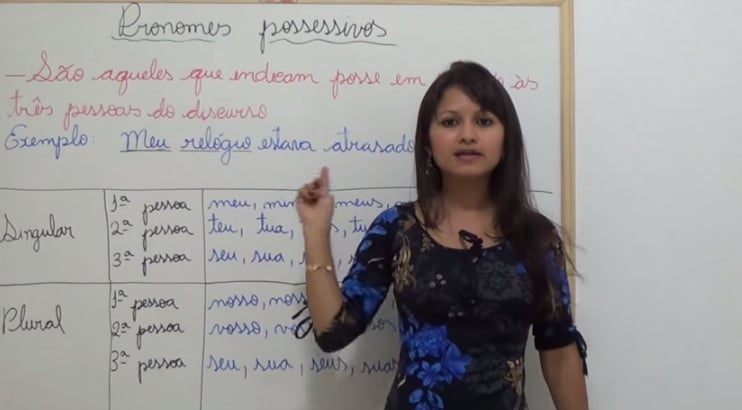 Pronomes possessivos
— São aqueles que indicam posse em às
três pessoas do discurso
Exemplo: Meu relógio estava atrasado
Singular
1ª pessoa meu, meus,
2ª pessoa teu, tua,
3ª pessoa seu, sua,
Plural
1ª pessoa nosso,
2ª pessoa vosso,
3ª pessoa seu, sua, seus, suas